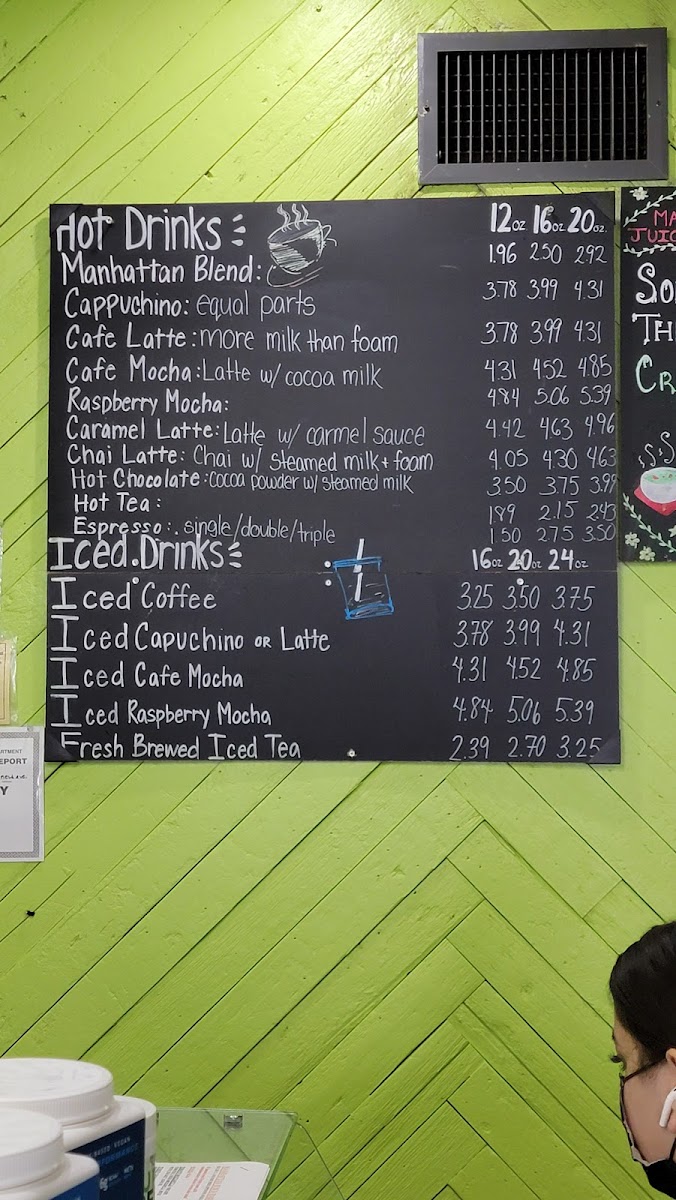 Hot Drinks 12oz 16oz 20oz.
Manhattan Blend: 1.96 2.50 2.92
Cappuchino: equal parts 3.78 3.99 4.31
Cafe Latte: more milk than foam 3.78 3.99 4.31
Cafe Mocha: Latte w/ cocoa milk 4.31 4.52 4.85
Raspberry Mocha: 4.84 5.06 5.39
Caramel Latte: Latte w/ carmel sauce 4.42 4.63 4.96
Chai Latte: Chai w/ steamed milk + foam 4.05 4.30 4.63
Hot Chocolate: cocoa powder w/ steamed milk 3.50 3.75 3.99
Hot Tea: 1.89 2.15 2.43
Espresso: single/double/triple 1.50 2.75 3.50
Iced Drinks 16oz 20oz 24oz
Iced Coffee 3.25 3.50 3.75
Iced Capuchino or Latte 3.78 3.99 4.31
Iced Cafe Mocha 4.31 4.52 4.85
Iced Raspberry Mocha 4.84 5.06 5.39
Fresh Brewed Iced Tea 2.39 2.70 3.25
MA
JUIC
SO
TH
CR
ARTMENT
EPORT
Y